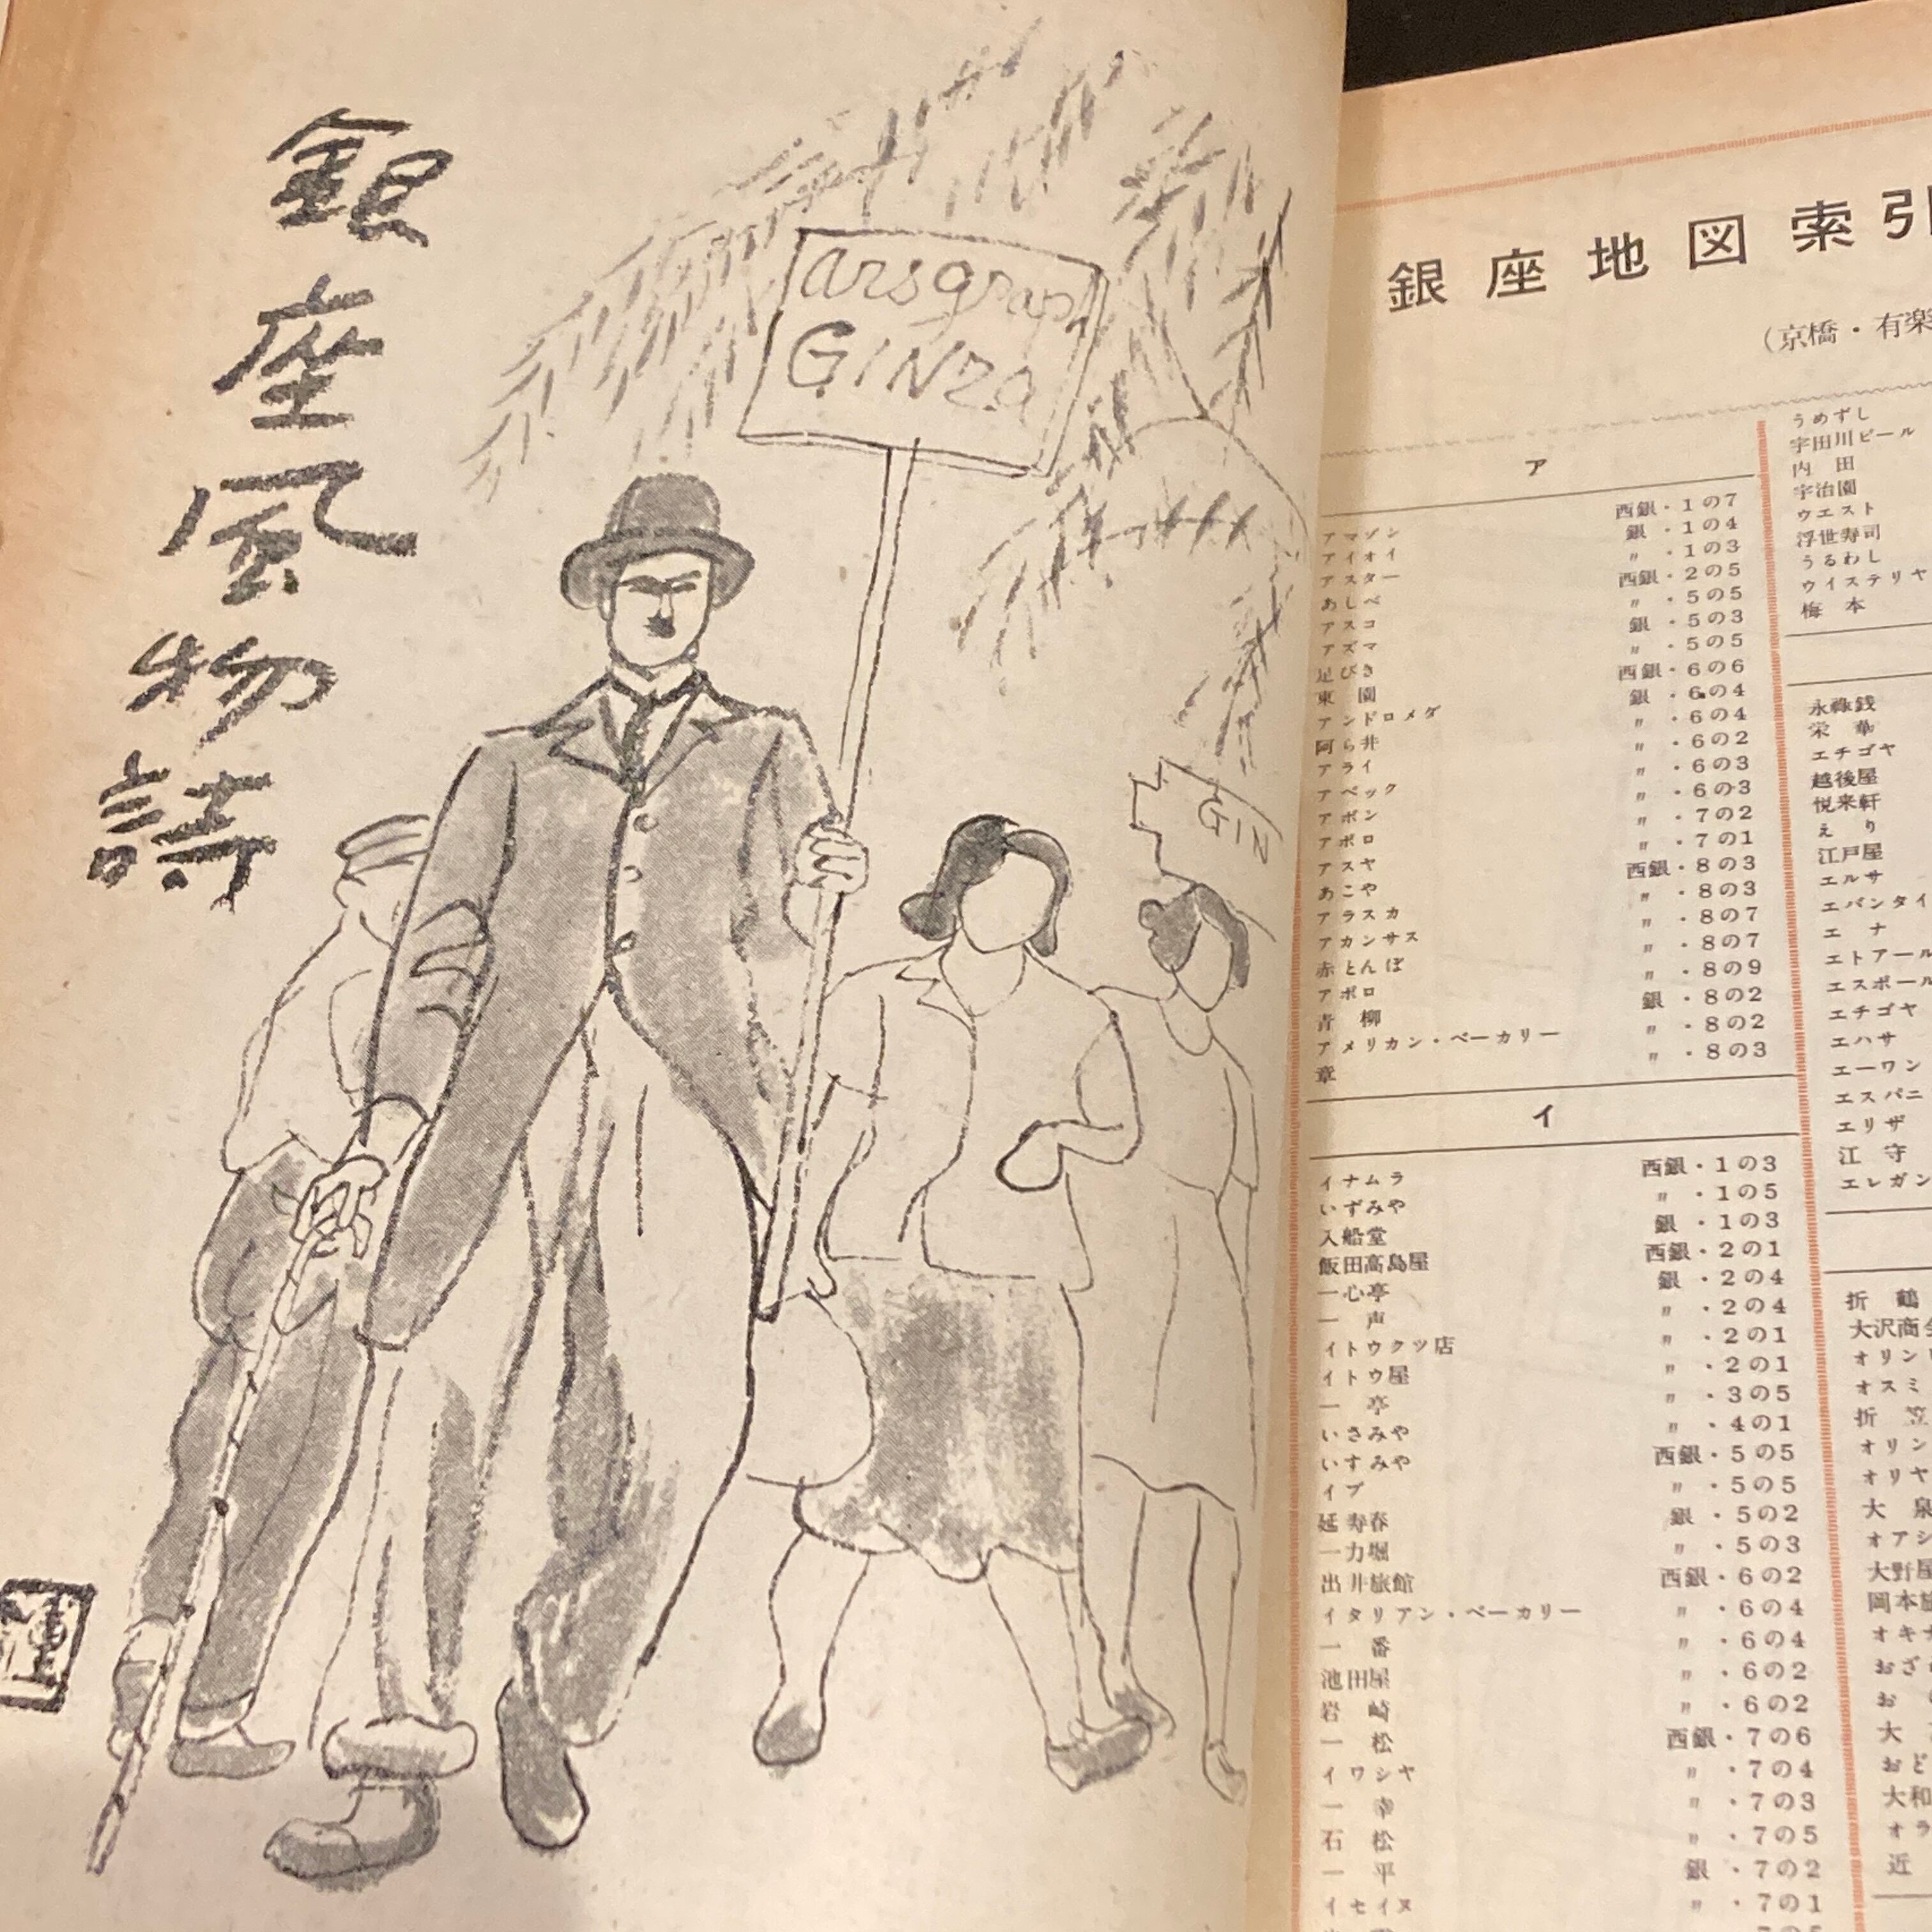 銀座風物詩
arsgrap
GINZa
GIN
銀座地図索引
（京橋・有楽
ア
アマゾン 西銀・1の7
アイオイ 銀・1の4
アスター 〃・1の3
あしべ 西銀・2の5
アスコ 〃・5の5
アズマ 銀・5の3
足びき 〃・5の5
東園 西銀・6の6
アンドロメダ 銀・6の4
阿ら井 〃・6の4
アライ 〃・6の2
アベック 〃・6の3
アボン 〃・6の3
アポロ 〃・7の2
アスヤ 〃・7の1
あこや 西銀・8の3
アラスカ 〃・8の3
アカンサス 〃・8の7
赤とんぼ 〃・8の7
アポロ 〃・8の9
青柳 銀・8の2
アメリカン・ベーカリー 〃・8の2
章 〃・8の3
イ
イナムラ 西銀・1の3
いずみや 〃・1の5
入船堂 銀・1の3
飯田高島屋 西銀・2の1
一心亭 銀・2の4
一声 〃・2の4
イトウクツ店 〃・2の1
イトウ屋 〃・2の1
一亭 〃・3の5
いさみや 〃・4の1
いすみや 西銀・5の5
イブ 〃・5の5
延寿春 銀・5の2
一力堀 〃・5の3
出井旅館 西銀・6の2
イタリアン・ベーカリー 〃・6の4
一番 〃・6の4
池田屋 〃・6の2
岩崎 〃・6の2
一松 西銀・7の6
イワシヤ 〃・7の4
一幸 〃・7の3
石松 〃・7の5
一平 銀・7の2
イセイヌ 〃・7の1
うめずし
宇田川ビール
内田
宇治園
ウエスト
浮世寿司
うるわし
ウイステリヤ
梅本
永楽銭
栄華
エチゴヤ
越後屋
悦来軒
えり
江戸屋
エルサ
エバンタイ
エナ
エトアール
エスポール
エチゴヤ
エハサ
エーワン
エスパニ
エリザ
江守
エレガン
折鶴
大沢商会
オリン
オスミ
折笠
オリン
オリヤ
大泉
オアシ
大野屋
岡本旅
オキナ
おざ
お
大
おど
大和
オラ
近